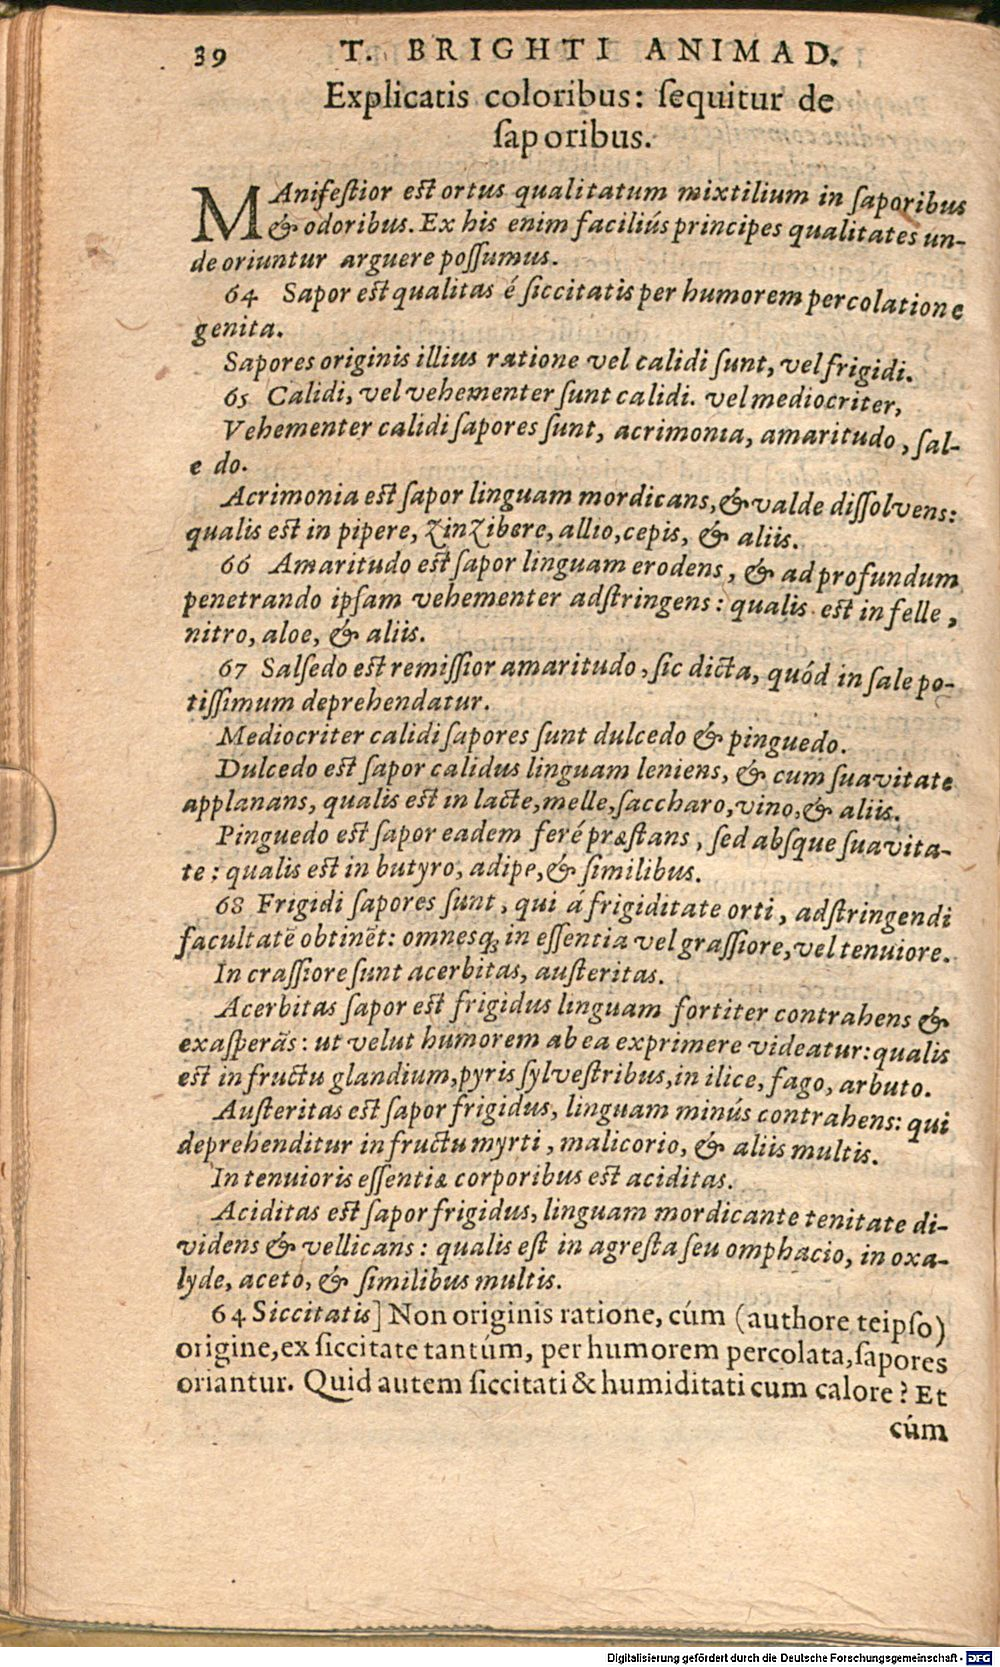 39 T. BRIGHTI ANIMAD.
Explicatis coloribus: ſequitur de
ſaporibus.
MAnifeſtior eſt ortus qualitatum mixtilium in ſaporibus
& odoribus. Ex his enim faciliús principes qualitates un-
de oriuntur arguere poſſumus.
64 Sapor eſt qualitas é ſiccitatis per humorem percolatione
genita.
Sapores originis illius ratione vel calidi ſunt, vel frigidi.
65 Calidi, vel vehementer ſunt calidi. vel mediocriter,
Vehementer calidi ſapores ſunt, acrimonia, amaritudo, ſal-
e do.
Acrimonia eſt ſapor linguam mordicans, & valde diſſolvens:
qualis eſt in pipere, zinzibere, allio, cepis, & aliis.
66 Amaritudo eſt ſapor linguam erodens, & ad profundum
penetrando ipſam vehementer adſtringens: qualis eſt in felle,
nitro, aloe, & aliis.
67 Salſedo eſt remiſſior amaritudo, ſic dicta, quód in ſale po-
tiſſimum deprehendatur.
Mediocriter calidi ſapores ſunt dulcedo & pinguedo.
Dulcedo eſt ſapor calidus linguam leniens, & cum ſuavitate
applanans, qualis eſt in lacte, melle, ſaccharo, vino, & aliis.
Pinguedo eſt ſapor eadem feré præſtans, ſed abſque ſuavita-
te: qualis eſt in butyro, adipe, & ſimilibus.
68 Frigidi ſapores ſunt, qui á frigiditate orti, adſtringendi
facultatẽ obtinẽt: omnesq; in eſſentia vel graſſiore, vel tenuiore.
In craſſiore ſunt acerbitas, auſteritas.
Acerbitas ſapor eſt frigidus linguam fortiter contrahens &
exaſperãs: ut velut humorem ab ea exprimere videatur: qualis
eſt in fructu glandium, pyris ſylveſtribus, in ilice, fago, arbuto.
Auſteritas eſt ſapor frigidus, linguam minús contrahens: qui
deprehenditur in fructu myrti, malicorio, & aliis multis.
In tenuioris eſſentiæ corporibus eſt aciditas.
Aciditas eſt ſapor frigidus, linguam mordicante tenitate di-
videns & vellicans: qualis eſt in agreſta ſeu omphacio, in oxa-
lyde, aceto, & ſimilibus multis.
64 Siccitatis] Non originis ratione, cúm (authore teipſo)
origine, ex ſiccitate tantúm, per humorem percolata, ſapores
oriantur. Quid autem ſiccitati & humiditati cum calore? Et
cúm
Digitalisierung gefördert durch die Deutsche Forschungsgemeinschaft - DFG